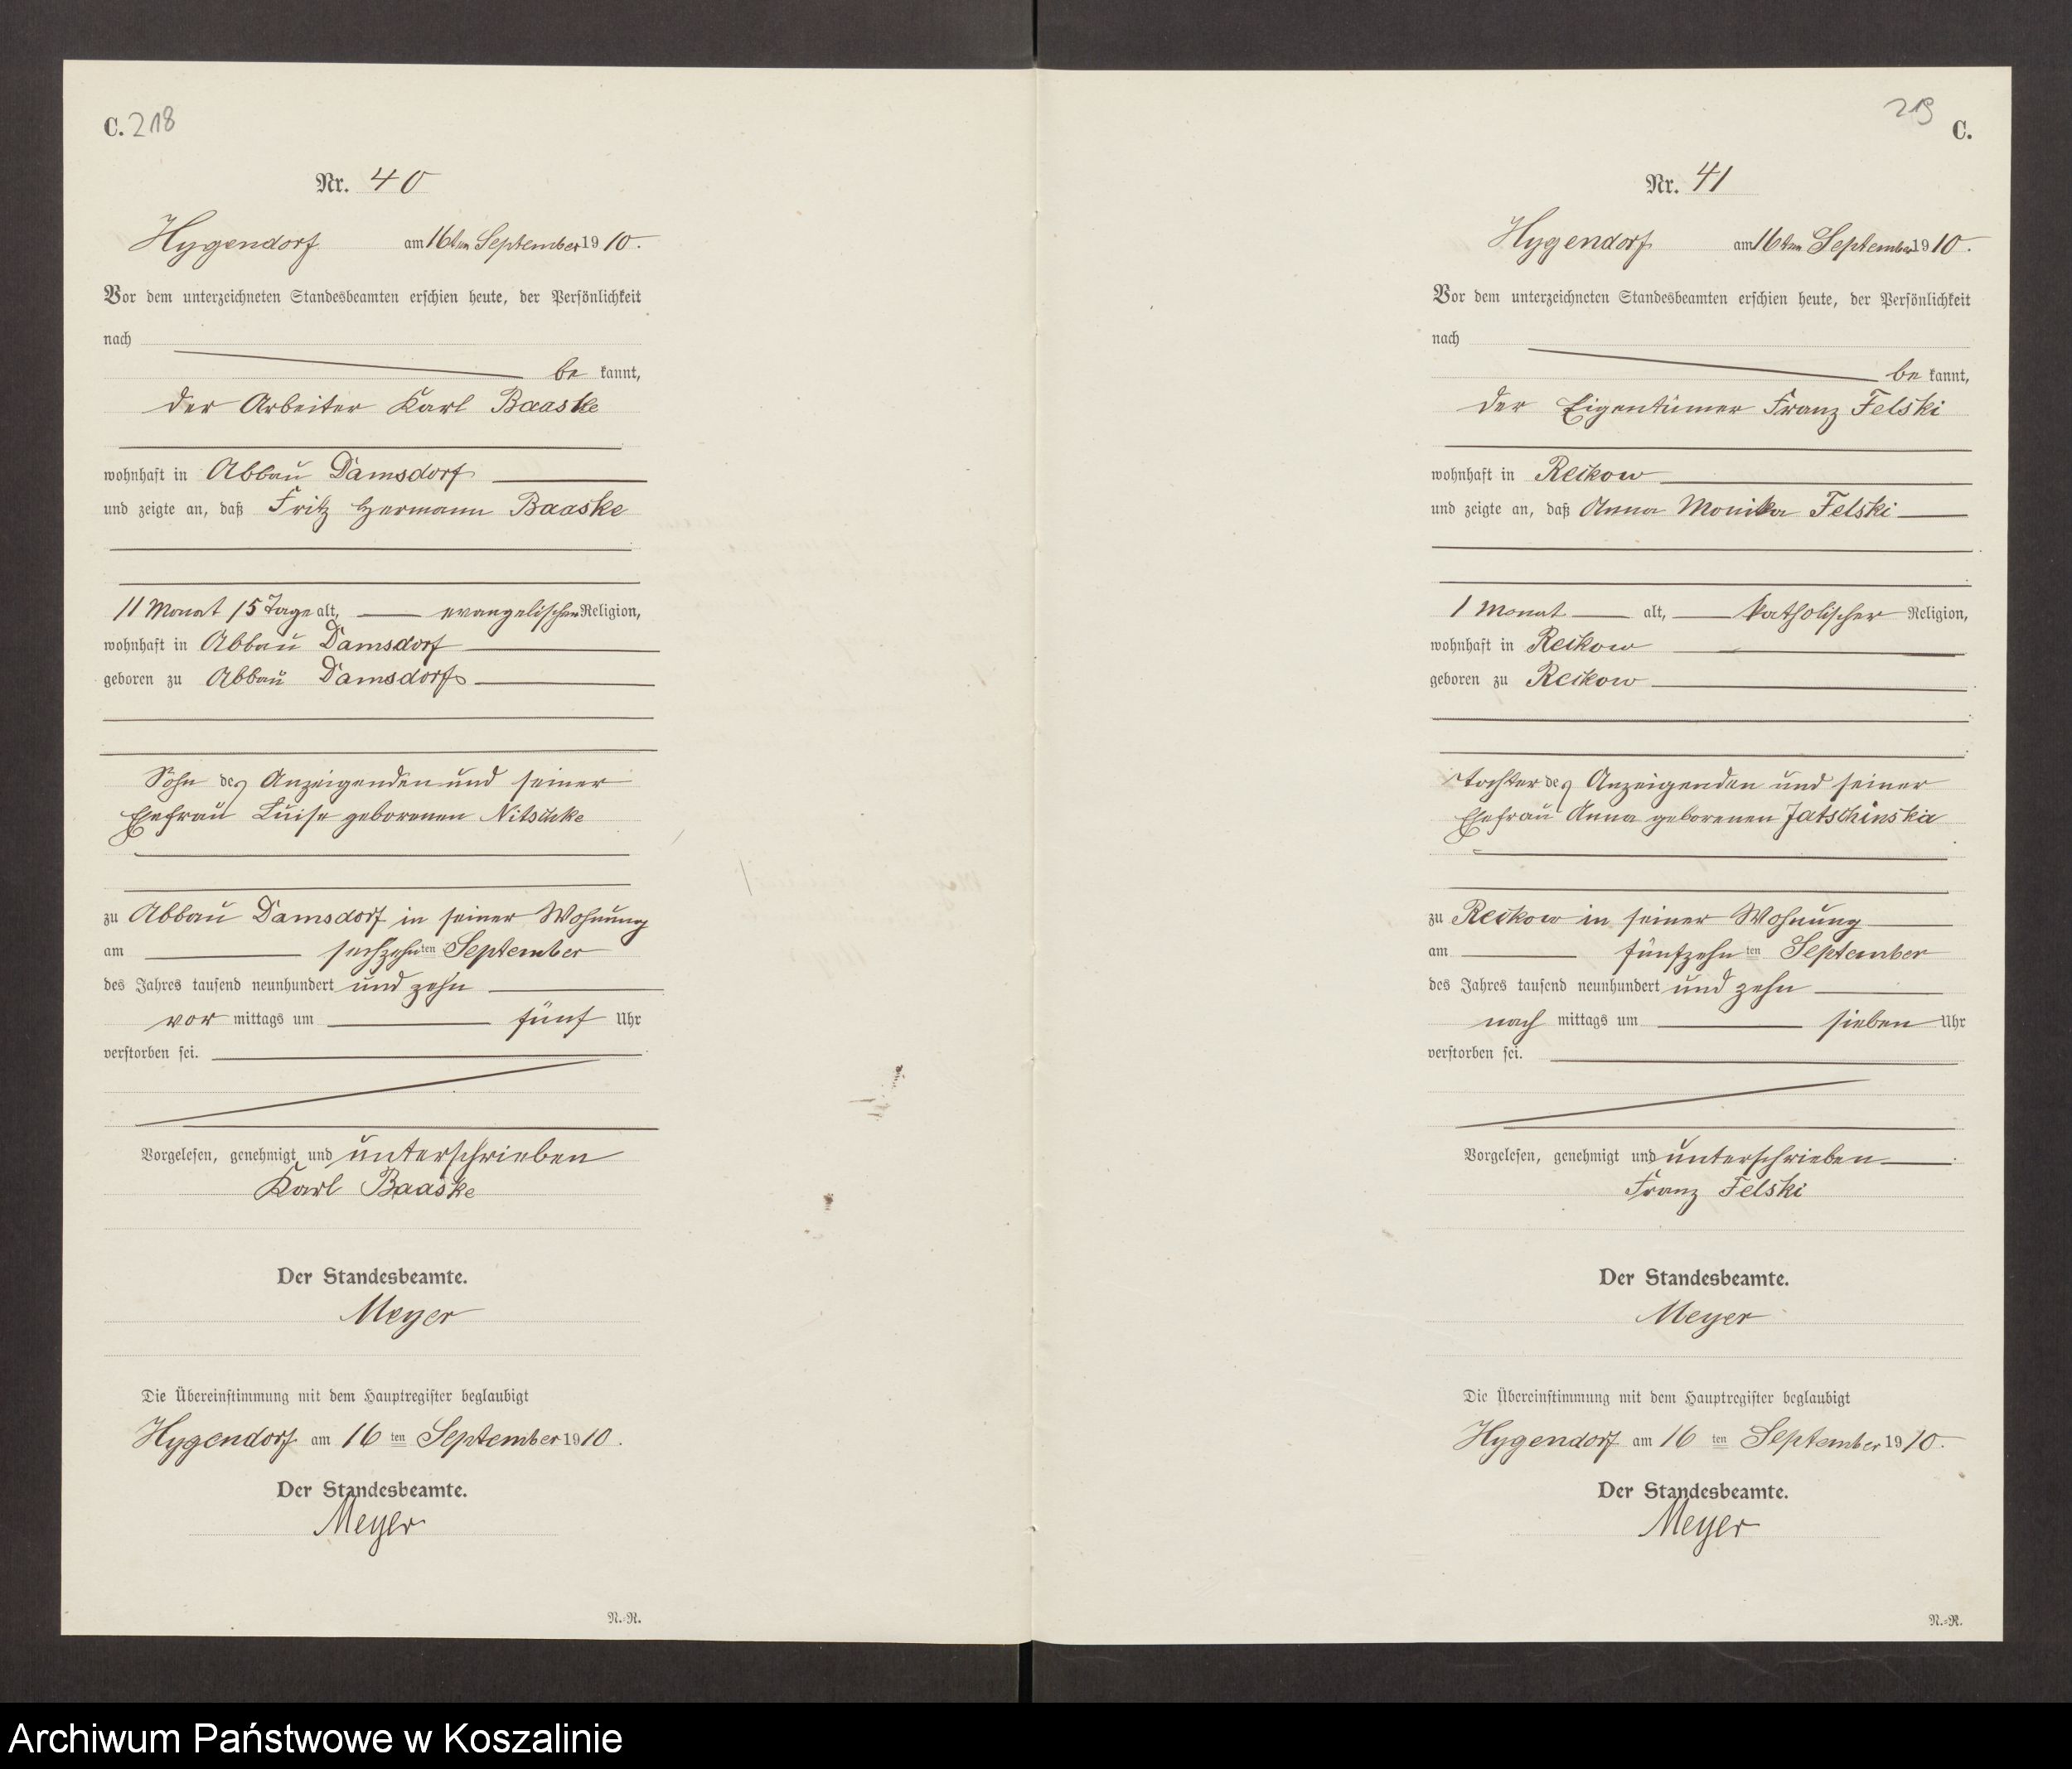 C. 218
Nr. 40
Hygendorf am 16ten September 1910.
Vor dem unterzeichneten Standesbeamten erschien heute, der Persönlichkeit
nach
be kannt,
der Arbeiter Karl Baaske
wohnhaft in Abbau Damsdorf
und zeigte an, daß Fritz Hermann Baaske
11 Monat 15 Tage alt, evangelischer Religion,
wohnhaft in Abbau Damsdorf
geboren zu Abbau Damsdorf
Sohn des Anzeigenden und seiner
Ehefrau Luise geborenen Nitschke
zu Abbau Damsdorf in seiner Wohnung
am sechzehnten September
des Jahres tausend neunhundert und zehn
vor mittags um fünf Uhr
verstorben sei.
Vorgelesen, genehmigt und unterschrieben
Karl Baaske
Der Standesbeamte.
Meyer
Die Übereinstimmung mit dem Hauptregister beglaubigt
Hygendorf am 16 ten September 1910.
Der Standesbeamte.
Meyer
N.-R.
219
C.
Nr. 41
Hygendorf am 16ten September 1910.
Vor dem unterzeichneten Standesbeamten erschien heute, der Persönlichkeit
nach
be kannt,
der Eigentümer Franz Felski
wohnhaft in Reikow
und zeigte an, daß Anna Monika Felski
1 Monat alt, katholischer Religion,
wohnhaft in Reikow
geboren zu Reikow
Tochter des Anzeigenden und seiner
Ehefrau Anna geborenen Jatschinska
zu Reikow in seiner Wohnung
am fünfzehn ten September
des Jahres tausend neunhundert und zehn
nach mittags um sieben Uhr
verstorben sei.
Vorgelesen, genehmigt und unterschrieben
Franz Felski
Der Standesbeamte.
Meyer
Die Übereinstimmung mit dem Hauptregister beglaubigt
Hygendorf am 16 ten September 1910.
Der Standesbeamte.
Meyer
N.-R.
Archiwum Państwowe w Koszalinie